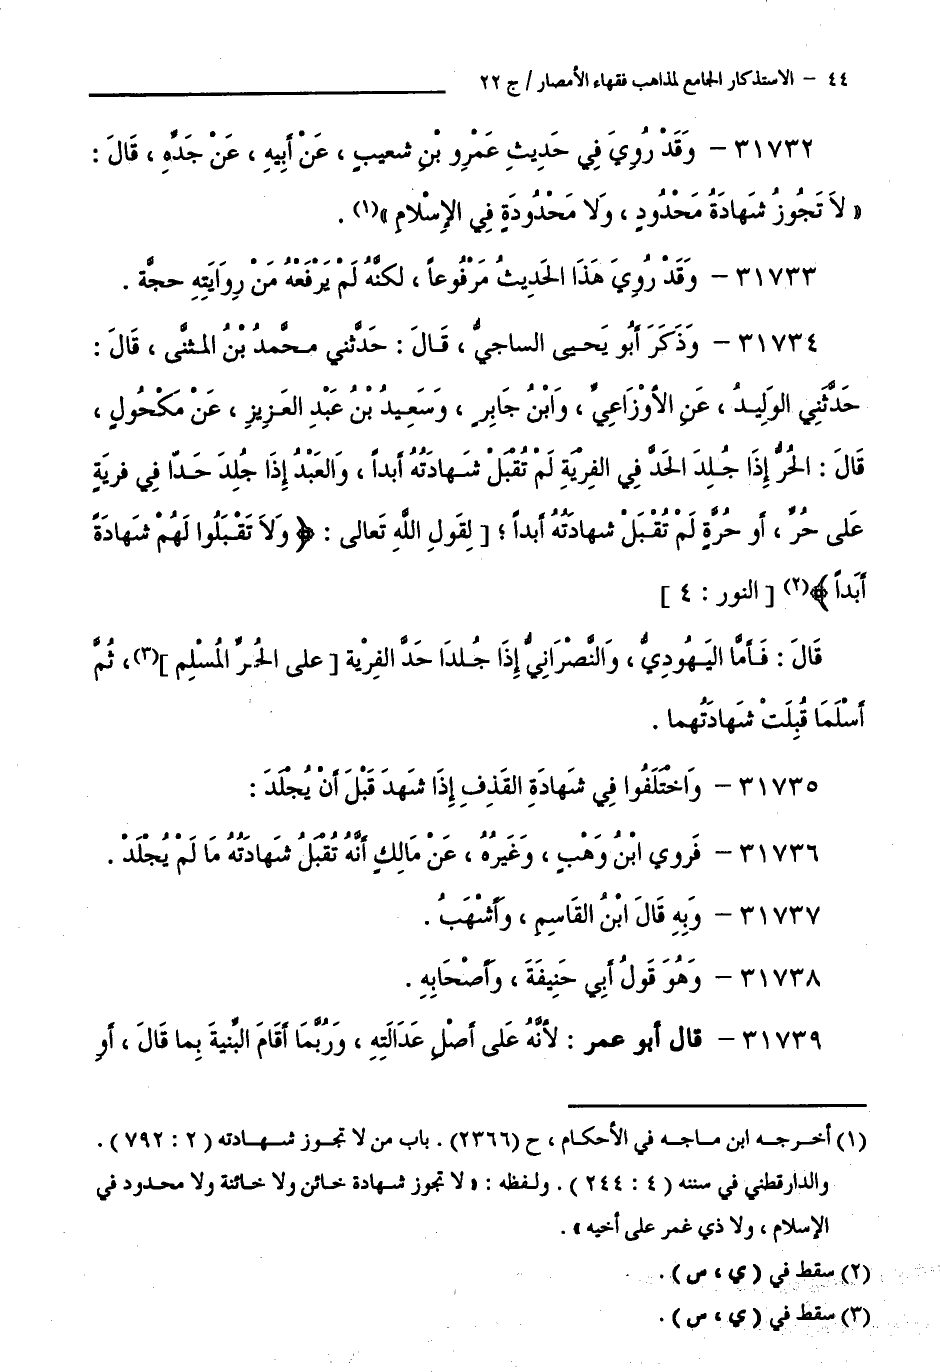 ٤٤ – الاستذكار الجامع لمذاهب فقهاء الأمصار / ج ٢٢
٣١٧٣٢ – وَقَدْ رُوِيَ فِي حَدِيثِ عَمْرِو بْنِ شعيبٍ ، عَنْ أَبِيهِ ، عَنْ جَدِّهِ ، قَالَ :
« لاَ تَجُوزُ شَهَادَةُ مَحْدُودٍ ، وَلا مَحْدُودَةٍ فِي الإِسْلامِ »(١) .
٣١٧٣٣ – وَقَدْ رُوِيَ هَذَا الحَدِيثُ مَرْفُوعاً ، لكنَّهُ لَمْ يَرْفَعْهُ مَنْ رِوَايَتِهِ حجَّة .
٣١٧٣٤ – وَذَكَرَ أَبُو يَحيى الساجيُّ ، قَالَ : حَدَّثني محمَّدُ بْنُ المثنَّى ، قَالَ :
حَدَّثَنِي الوَلِيدُ ، عَنِ الأَوْزَاعِيِّ ، وَابْنُ جَابِرٍ ، وَسَعِيدُ بْنُ عَبْدِ العَزِيزِ ، عَنْ مَكْحُولٍ ،
قَالَ : الحُرُّ إِذَا جُلِدَ الحَدَّ فِي الفِرْيَةِ لَمْ تُقْبَلْ شَهادَتُهُ أبداً ، وَالعَبْدُ إِذَا جُلِدَ حَدّا فِي فريَةٍ
عَلى حُرٍّ ، أَو حُرَّةٍ لَمْ تُقْبَلْ شهادَتُهُ أبداً ؛ [ لِقَولِ اللَّهِ تَعالى : ﴿ وَلاَ تَقْبَلُوا لَهُمْ شَهَادَةً
أَبَداً ﴾(٢) [ النور : ٤ ]
قَالَ : فَأَمَّا اليَهُودِيُّ ، وَالنَّصْرَانِيُّ إِذَا جُلدَا حَدَّ الفِرْية [ على الحُرِّ المُسْلِمِ ](٣)، ثُمَّ
أَسْلَمَا قُبِلَتْ شَهادَتُهما .
٣١٧٣٥ – وَاخْتَلَفُوا فِي شَهَادَةِ القَذفِ إِذَا شَهِدَ قَبْلَ أَنْ يُجْلَدَ :
٣١٧٣٦ – فَروي ابْنُ وَهْبٍ ، وَغَيرُهُ ، عَنْ مَالِكٍ أَنَّهُ تُقْبَلُ شَهَادَتُهُ مَا لَمْ يُجْلَدْ .
٣١٧٣٧ – وَبِهِ قَالَ ابْنُ القَاسِمِ ، وَأَشْهَبُ .
٣١٧٣٨ – وَهُوَ قَولُ أَبِي حَنِيفَةَ ، وَأَصْحَابِهِ .
٣١٧٣٩ – قال أبو عمر : لأنَّهُ عَلى أَصْلِ عَدَالَتِهِ ، وَرُبَّمَا أَقَامَ البَّنيةَ بِما قَالَ ، أَوِ
(١) أخرجه ابن ماجه في الأحكام ، ح (٢٣٦٦) . باب من لا تجوز شهادته ( ٢ : ٧٩٢ ) .
والدارقطني في سننه ( ٤ : ٢٤٤ ) . ولفظه : « لا تجوز شهادة خائن ولا خائنة ولا محدود في
الإسلام ، ولا ذي غمر على أخيه » .
(٢) سقط في ( ي ، س ) .
(٣) سقط في ( ي ، س ) .